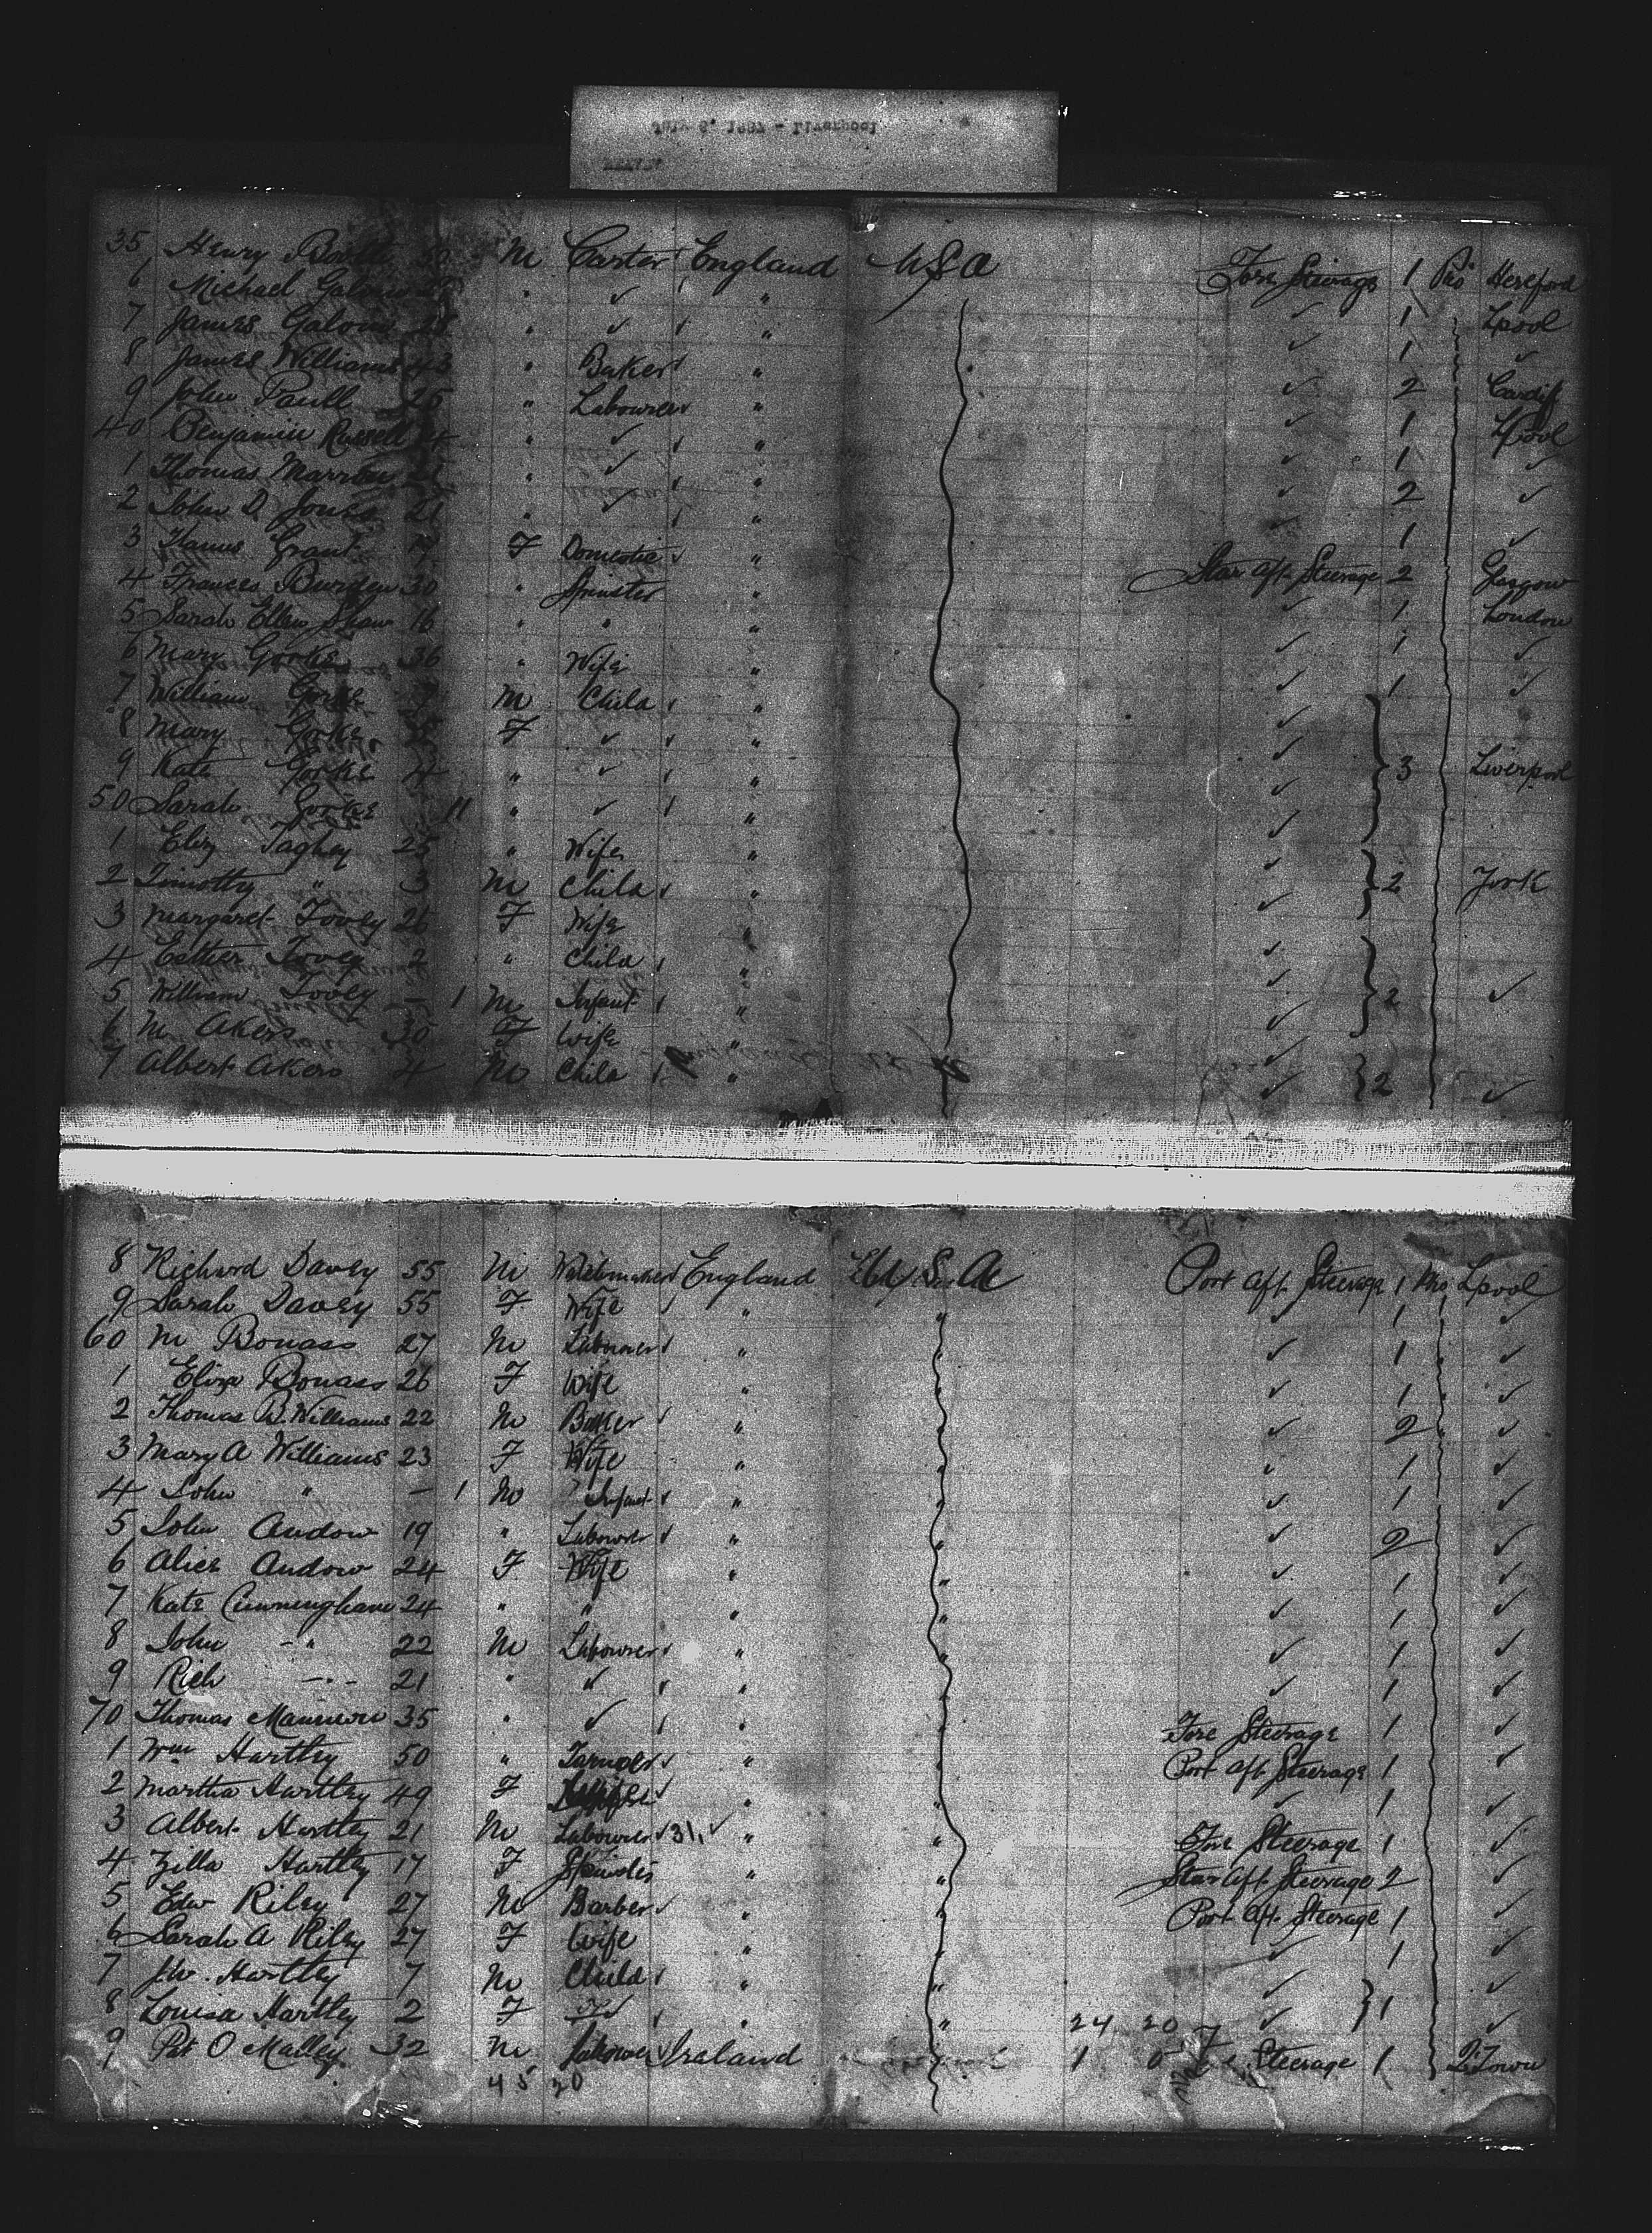 July 6, 1887 - Liverpool
35 Henry M Carter England U S A Fore Steerage 1 Pro Hereford
6 Michael " ✓ " ✓ 1 Lpool
7 James Galvin 28 " ✓ " ✓ 1 ✓
8 James Williams 43 " Baker " ✓ 2 Cardiff
9 John Paull 25 " Labourer " ✓ 1 Lpool
40 Benjamin Russell 24 " ✓ " ✓ 1 ✓
1 Thomas Marron " ✓ " ✓ 2 ✓
2 John D. Jones 21 " ✓ " ✓ 1 ✓
3 Grant F Domestic " Star aft Steerage 2 Glasgow
4 Frances Burden 30 " Spinster " ✓ 1 London
5 Sarah Ellen Shaw 16 " " " ✓ 1 ✓
6 Mary Gorke 36 " Wife " ✓ 1 ✓
7 William Gorke 9 M Child " ✓
8 Mary Gorke F ✓ " ✓
9 Kate Gorke 4 " ✓ " ✓ 3 Liverpool
50 Sarah Gorke 11 " ✓ " ✓
1 Eliz Taghey 25 " Wife " ✓
2 Timothy " 3 M Child " ✓ 2 York
3 Margaret Tovey 26 F Wife " ✓
4 Esther Tovey 2 " Child " ✓
5 William Tovey - 1 M Infant " ✓ 2 ✓
6 M Akers 30 F Wife " ✓
7 Albert Akers 4 M Child " ✓ 2 ✓
8 Richard Davey 55 M Watchmaker England U. S. A Port aft Steerage 1 Pro Lpool
9 Sarah Davey 55 F Wife " " ✓ 1 ✓
60 M Bonass 27 M Labourer " " ✓ 1 ✓
1 Eliza Bonass 26 F Wife " " ✓ 1 ✓
2 Thomas R. Williams 22 M Baker " " ✓ 2 ✓
3 Mary A Williams 23 F Wife " " ✓ 1 ✓
4 John " - 1 M Infant " " ✓ 1 ✓
5 John Audow 19 " Labourer " " ✓ 2 ✓
6 Alice Audow 24 F Wife " " ✓ 1 ✓
7 Kate Cunningham 24 " " " " ✓ 1 ✓
8 John - " 22 M Labourer " " ✓ 1 ✓
9 Rich - " - 21 " ✓ " " ✓ 1 ✓
70 Thomas Mannion 35 " ✓ " " Fore Steerage 1 ✓
1 Wm Hartley 50 " " " Port aft Steerage 1 ✓
2 Martha Hartley 49 F " " ✓ 1 ✓
3 Albert Hartley 21 M Labourer " " Fore Steerage 1 ✓
4 Zilla Hartley 17 F Spinster " " Star aft Steerage 2 ✓
5 Edw Riley 27 M Barber " " Port aft Steerage 1 ✓
6 Sarah A Riley 27 F Wife " " ✓ 1 ✓
7 J.W. Hartley 7 M Child " " ✓ ✓
8 Louisa Hartley 2 F " " 24 20 ✓ 1 ✓
9 Pat O Malley 32 M Labourer Ireland 1 0 Steerage 1 Q. Town
45 20